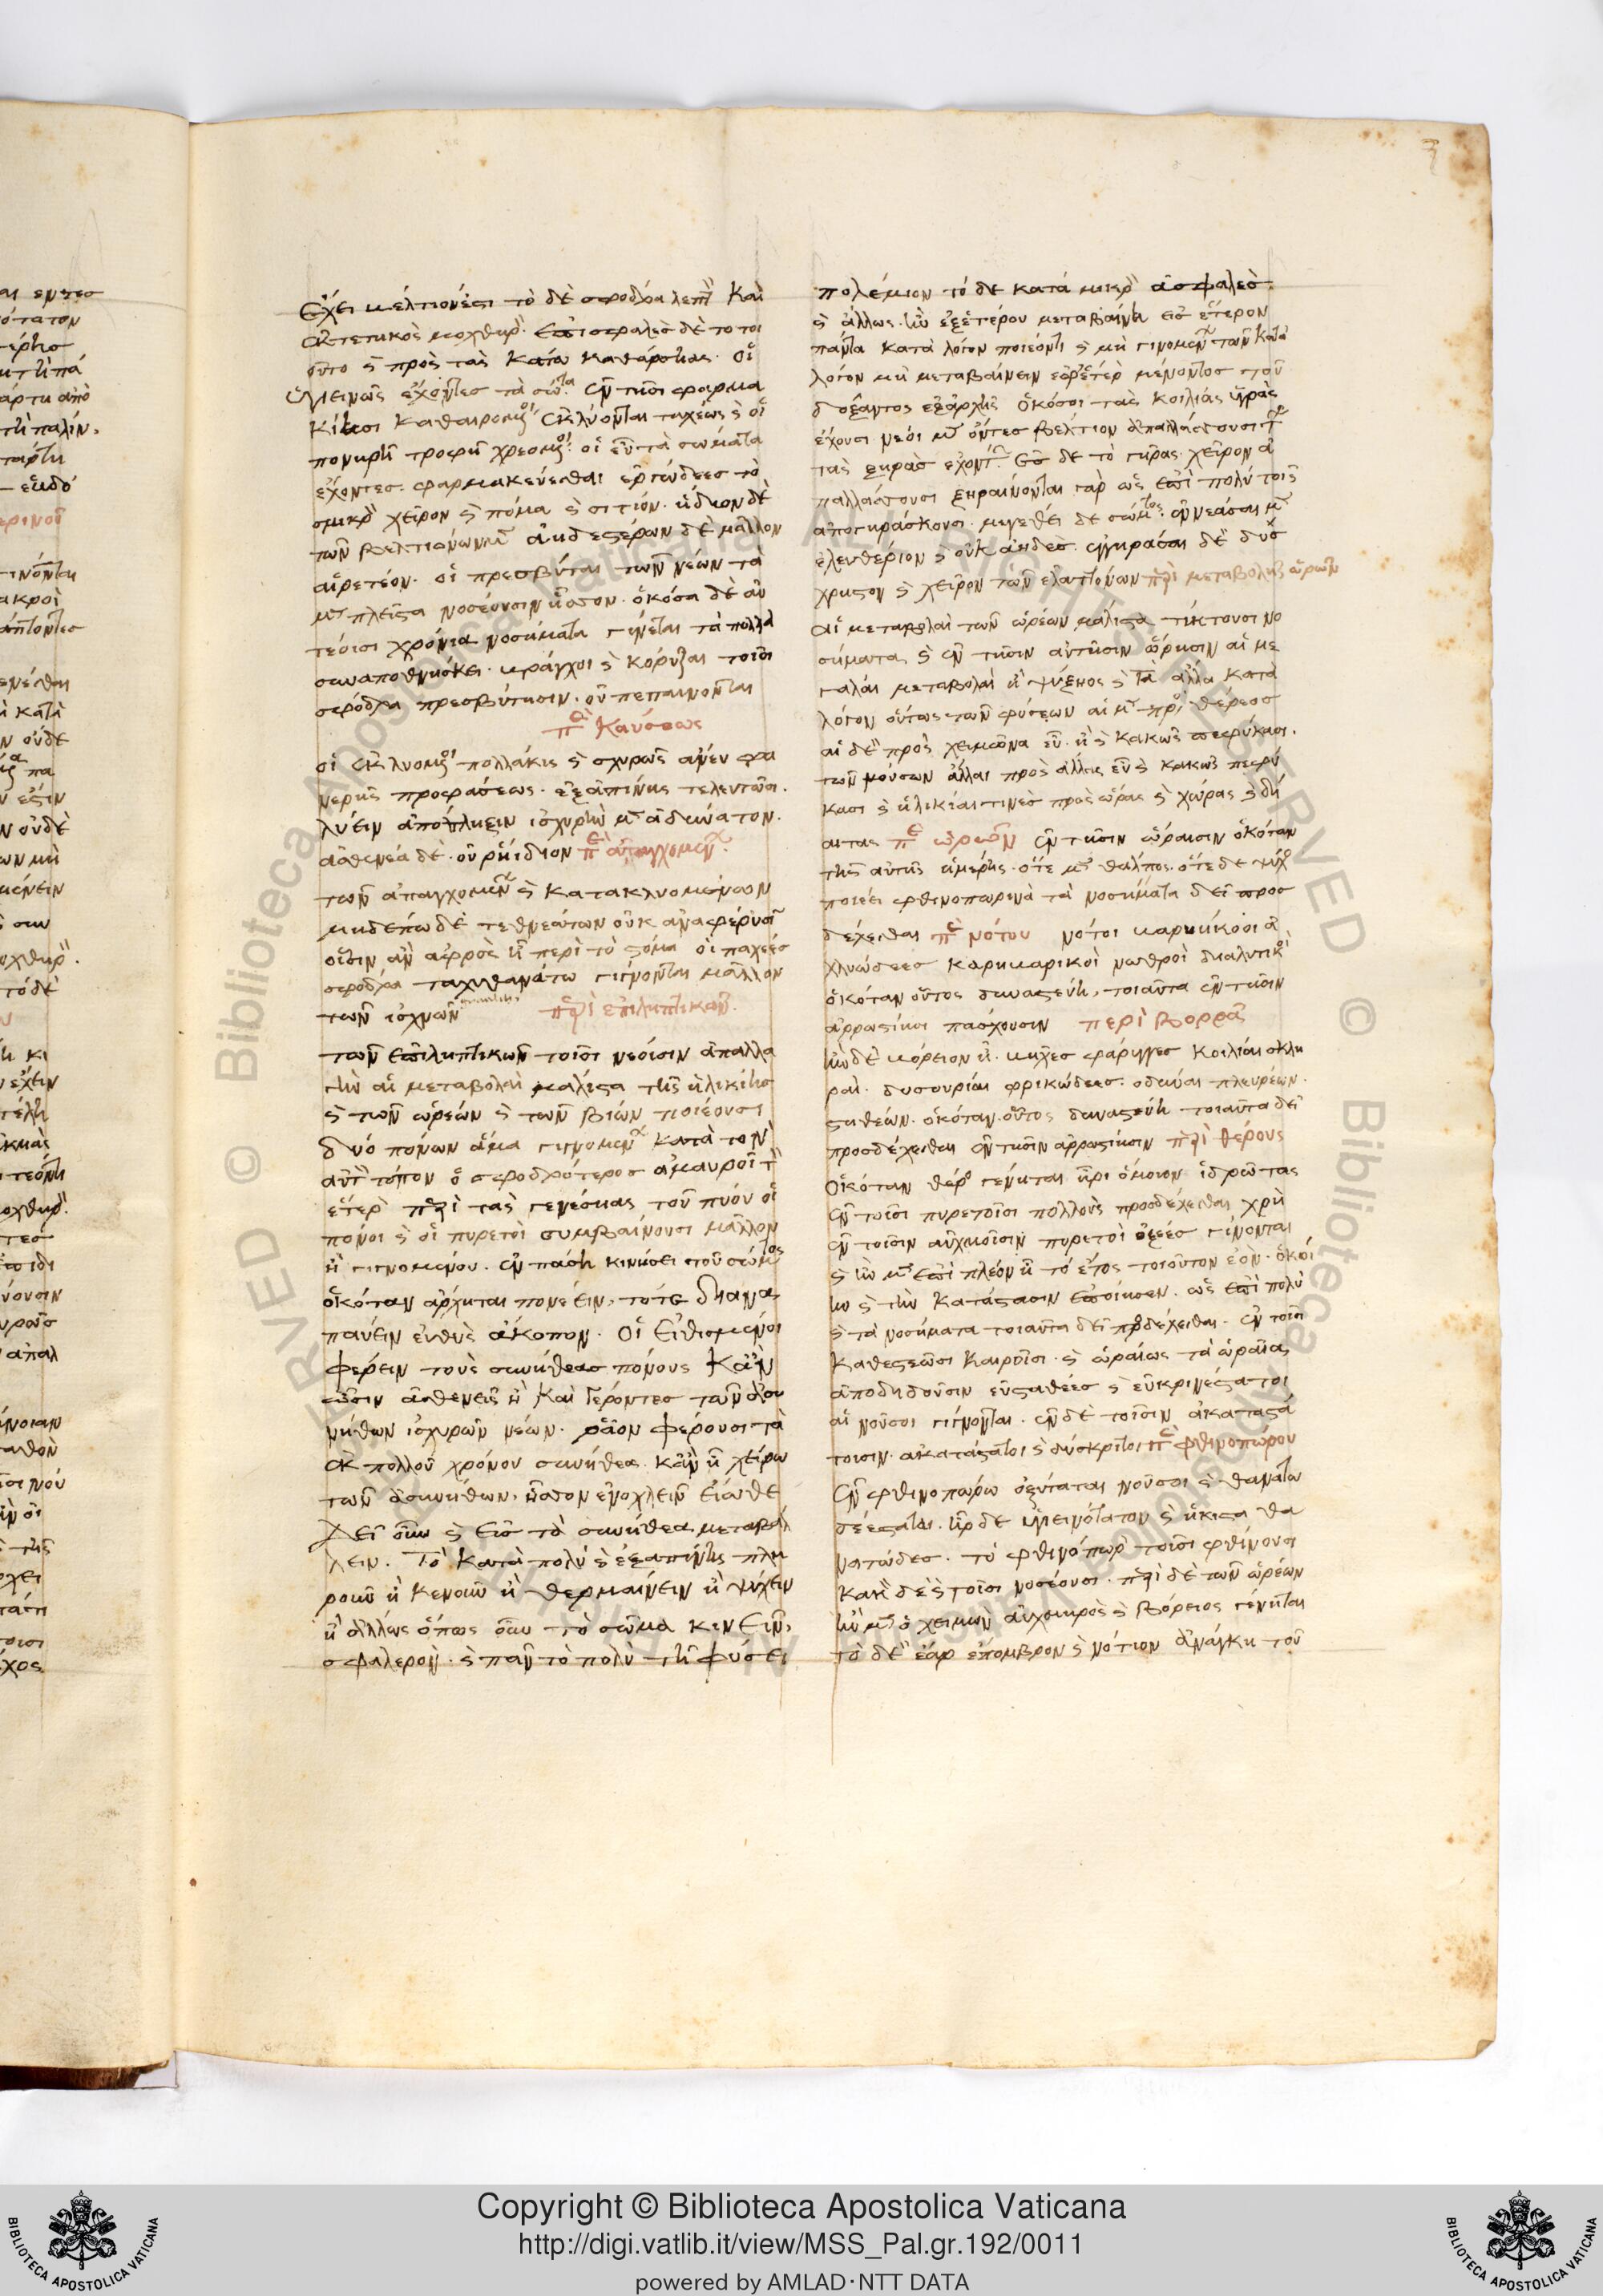 ἔχει βέλτιον ἐστι τὸ δὲ σφόδρα λεπτὸν καὶ
ἐκτετηκὸς μοχθηρὸν. ἐπισφαλὲς δὲ τὸ τοι
οῦτο καὶ πρὸς τὰς κάτω καθάρσιας. οἱ
ὑγιεινῶς ἔχοντες τὰ σώματα ἐν τῆσι φαρμα
κίησι καθαιρόμενοι ἐκλύονται ταχέως καὶ οἱ
πονηρῆ τροφῆ χρεόμενοι. οἱ εὖ τὰ σώματα
ἔχοντες. φαρμακεύεσθαι ἐργώδεες τὸ
σμικρὸν χεῖρον καὶ πόμα καὶ σιτίον. ἥδιον δὲ
τῶν βελτιόνων μὲν ἀηδεστέρων δὲ μᾶλλον
αἱρετέον. οἱ πρεσβύται τῶν νέων τὰ
μὲν πλεῖστα νοσέουσιν ἧσσον. ὁκόσα δὲ αὐ
τέοισι χρόνια νοσήματα γίνεται τὰ πολλὰ
συναποθνήσκει. βράγχοι καὶ κόρυζαι τοῖσι
σφόδρα πρεσβύτησιν. οὐ πεπαίνονται
περὶ καύσεως
οἱ ἐκλυόμενοι πολλάκις καὶ σχυρῶς ἄνευ φα
νερῆς προφάσεως. ἐξαπίνης τελευτῶσι.
λύειν ἀπόπληξιν ἰσχυρὴν μὲν ἀδύνατον.
ἀσθενέα δὲ. οὐ ῥηίδιον περὶ ἀπαγχομένων
τῶν ἀπαγχομένων καὶ κατακλυομένων
μηδέπω δὲ τεθνεώτων οὐκ ἀναφέρουσι
οἷσιν ἂν ἀφρὸς ἦ περὶ τὸ στόμα οἱ παχέες
σφόδρα ταχυθανάτω γίγνονται μᾶλλον
τῶν ἰσχνῶν περὶ ἐπιληπτικῶν.
τῶν ἐπιληπτικῶν τοῖσι νέοισιν ἀπαλλα
γὴν αἱ μεταβολαὶ μάλιστα τῆς ἡλικίης
καὶ τῶν ὡρέων καὶ τῶν βίων ποιέουσι
δύο πόνων ἅμα γιγνομένων κατὰ τὸν
αὐτὸν τόπον ὁ σφοδρότερος ἀμαυροῖ τὸν
ἕτερον περὶ τὰς γενέσιας τοῦ πύου οἱ
πόνοι καὶ οἱ πυρετοὶ συμβαίνουσι μᾶλλον
ἢ γιγνομένου. ἐν πάση κινήσει τοῦ σώματος
ὁκόταν ἄρχηται πονέειν, τότε διανα
παύειν εὐθὺς ἄκοπον. οἱ εἰθισμένοι
φέρειν τοὺς συνήθεας πόνους κἂν
ὦσιν ἀσθενεῖς ἢ καὶ γέροντες τῶν ἀσυ
νήθων ἰσχυρῶν νέων. ῥᾶον φέρουσι τὰ
ἐκ πολλοῦ χρόνου συνήθεα. κἂν ἦ χείρω
τῶν ἀσυνήθων. ἧσσον ἐνοχλεῖν εἴωθε
δεῖ οὖν καὶ εἰς τὰ ἀσυνήθεα μεταβάλ
λειν. τὸ κατὰ πολὺ καὶ ἐξαπίνης πλη
ροῦν ἢ κενοῦν ἢ θερμαίνειν ἢ ψύχειν
ἢ ἄλλως ὅπως οὖν τὸ σῶμα κινεῖν,
σφαλερὸν. καὶ πᾶν τὸ πολὺ τῆ φύσει
πολέμιον τὸ δὲ κατὰ μικρὸν ἀσφαλὲς
καὶ ἄλλως. ἢν ἐξ ἑτέρου μεταβαίνη εἰς ἕτερον
πάντα κατὰ λόγον ποιέοντι καὶ μὴ γινομένων τῶν κατὰ
λόγον μὴ μεταβαίνειν ἐφ' ἕτερον μένοντος τοῦ
δόξαντος ἐξ ἀρχῆς ὁκόσοι τὰς κοιλίας ὑγρὰς
ἔχουσι νέοι μὲν ὄντες βέλτιον ἀπαλλάσσουσι τῶν
τὰς ξηρὰς ἐχόντων. ἐς δὲ τὸ γῆρας χεῖρον ἀ
παλλάσσουσι ξηραίνονται γὰρ ὡς ἐπὶ πολὺ τοῖς
ἀπογηράσκουσι. μεγέθει δὲ σώματος. ἐννεάσαι μὲν
ἐλευθέριον καὶ οὐκ ἀηδὲς. ἐγγηρᾶσαι δὲ δύσ
χρηστον καὶ χεῖρον τῶν ἐλαττόνων περὶ μεταβολῆς ὡρῶν
αἱ μεταβολαὶ τῶν ὡρέων μάλιστα τίκτουσι νο
σήματα, καὶ ἐν τῆσιν αὐτῆσιν ὥρησιν αἱ με
γάλαι μεταβολαὶ ἢ ψύξηος καὶ τὰ ἄλλα κατὰ
λόγον οὕτως τῶν φύσεων αἱ μὲν πρὸς θέρεος
αἱ δὲ πρὸς χειμῶνα εὖ ἢ καὶ κακῶς πεφύκασι.
τῶν νούσων ἄλλαι πρὸς ἄλλας εὖ καὶ κακῶς πεφύ
κασι καὶ ἡλικίαι τινὲς πρὸς ὥρας καὶ χώρας καὶ δι
αιτας περὶ ὡρεῶν ἐν τῆσιν ὥραισιν ὁκόταν
τῆς αὐτῆς ἡμέρης. ὁτὲ μὲν θάλπος. ὁτὲ δὲ ψύχος
ποιέει φθινοπωρινὰ τὰ νοσήματα δεῖ προσ
δέχεσθαι περὶ νότου νότοι βαρυήκοοι ἀ
χλυώδεες καρηβαρικοὶ νωθροὶ διαλυτικοὶ
ὁκόταν οὗτος δυναστεύη, τοιαῦτα ἐν τῆσιν
ἀρρωστίησι πάσχουσιν περὶ βορρᾶ
ἢν δὲ βόρειον ἦ. βῆχες φάρυγγες κοιλίαι σκλη
ραὶ. δυσουρίαι φρικώδεες. ὀδύναι πλευρέων.
στηθέων. ὁκόταν οὗτος δυναστεύη τοιαῦτα δεῖ
προσδέχεσθαι ἐν τῆσιν ἀρρωστίησιν περὶ θέρους
ὁκόταν θέρος γένηται ἦρι ὅμοιον ἱδρῶτας
ἐν τοῖσι πυρετοῖσι πολλοὺς προσδέχεσθαι χρὴ
ἐν τοῖσιν αὐχμοῖσιν πυρετοὶ ὀξέες γίνονται
καὶ ἢν μὲν ἐπὶ πλέον ἦ τὸ ἔτος τοιοῦτον ἐὸν. ὁκοί
ην καὶ τὴν κατάστασιν ἐποίησεν. ὡς ἐπὶ πολὺ
καὶ τὰ νοσήματα τοιαῦτα δεῖ προσδέχεσθαι. ἐν τοῖσι
καθεστεῶσι καιροῖσι. καὶ ὡραίως τὰ ὡραῖα
ἀποδιδοῦσιν εὐσταθέες καὶ εὐκρινέσταтοι
αἱ νοῦσοι γίγνονται. ἐν δὲ τοῖσιν ἀκαταστά
τοισιν. ἀκατάστατοι καὶ δύσκριτοι περὶ φθινοπώρου
ἐν φθινοπώρω ὀξύταται νοῦσοι καὶ θανατω
δέεσταται. ἦρ δὲ ὑγιεινότατον καὶ ἥκιστα θα
νατῶδες. τὸ φθινόπωρον τοῖσι φθίνουσι
κακὸν δὲ καὶ τοῖσι νοσέουσι. περὶ δὲ τῶν ὡρέων
ἢν μὲν ὁ χειμὼν αὐχμηρὸς καὶ βόρειος γένηται
τὸ δὲ ἔαρ ἔπομβρον καὶ νότιον ἀνάγκη τοῦ
Copyright © Biblioteca Apostolica Vaticana
http://digi.vatlib.it/view/MSS_Pal.gr.192/0011
powered by AMLAD·NTT DATA